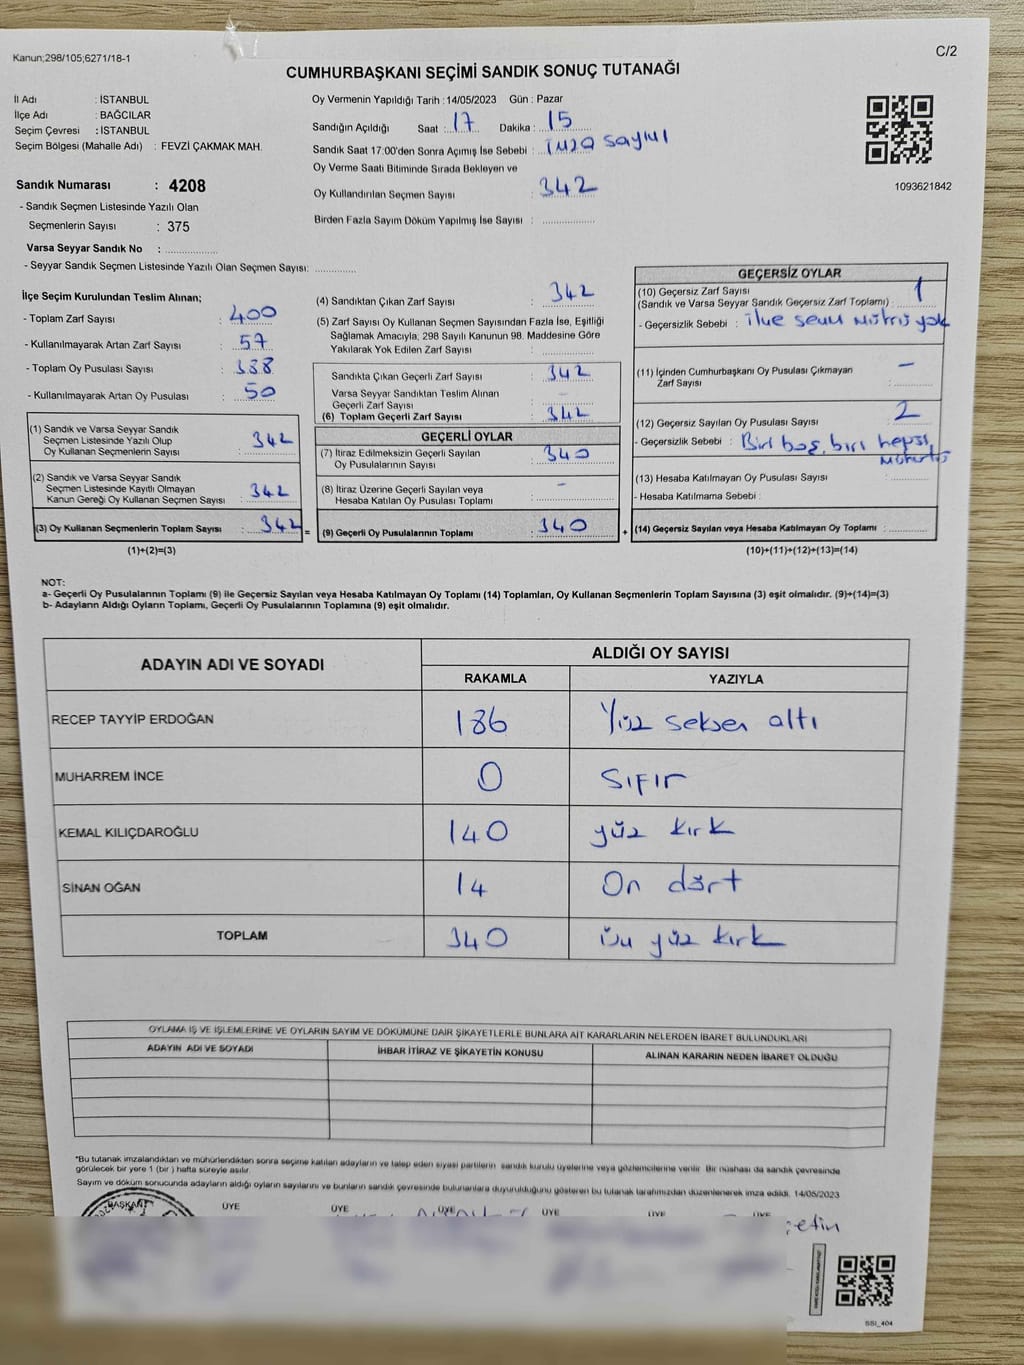 Kanun;298/105;6271/18-1
C/2
CUMHURBAŞKANI SEÇİMİ SANDIK SONUÇ TUTANAĞI
İl Adı : İSTANBUL
İlçe Adı : BAĞCILAR
Seçim Çevresi : İSTANBUL
Seçim Bölgesi (Mahalle Adı) : FEVZİ ÇAKMAK MAH.
Sandık Numarası : 4208
- Sandık Seçmen Listesinde Yazılı Olan
Seçmenlerin Sayısı : 375
Varsa Seyyar Sandık No :
- Seyyar Sandık Seçmen Listesinde Yazılı Olan Seçmen Sayısı:
Oy Vermenin Yapıldığı Tarih : 14/05/2023 Gün : Pazar
Sandığın Açıldığı Saat : 17 Dakika : 15
Sandık Saat 17:00'den Sonra Açımış İse Sebebi : imza sayımı
Oy Verme Saati Bitiminde Sırada Bekleyen ve
Oy Kullandırılan Seçmen Sayısı : 342
Birden Fazla Sayım Döküm Yapılmış İse Sayısı :
1093621842
İlçe Seçim Kurulundan Teslim Alınan;
- Toplam Zarf Sayısı : 400
- Kullanılmayarak Artan Zarf Sayısı : 57
- Toplam Oy Pusulası Sayısı : 388
- Kullanılmayarak Artan Oy Pusulası : 50
(1) Sandık ve Varsa Seyyar Sandık
Seçmen Listesinde Yazılı Olup
Oy Kullanan Seçmenlerin Sayısı : 342
(2) Sandık ve Varsa Seyyar Sandık
Seçmen Listesinde Kayıtlı Olmayan
Kanun Gereği Oy Kullanan Seçmen Sayısı : 342
(3) Oy Kullanan Seçmenlerin Toplam Sayısı : 342
(1)+(2)=(3)
(4) Sandıktan Çıkan Zarf Sayısı : 342
(5) Zarf Sayısı Oy Kullanan Seçmen Sayısından Fazla İse, Eşitliği
Sağlamak Amacıyla; 298 Sayılı Kanunun 98. Maddesine Göre
Yakılarak Yok Edilen Zarf Sayısı :
Sandıkta Çıkan Geçerli Zarf Sayısı : 342
Varsa Seyyar Sandıktan Teslim Alınan
Geçerli Zarf Sayısı : -
(6) Toplam Geçerli Zarf Sayısı : 342
GEÇERLİ OYLAR
(7) İtiraz Edilmeksizin Geçerli Sayılan
Oy Pusulalarının Sayısı : 340
(8) İtiraz Üzerine Geçerli Sayılan veya
Hesaba Katılan Oy Pusulası Toplamı : -
= (9) Geçerli Oy Pusulalarının Toplamı : 340
GEÇERSİZ OYLAR
(10) Geçersiz Zarf Sayısı
(Sandık ve Varsa Seyyar Sandık Geçersiz Zarf Toplamı) : 1
- Geçersizlik Sebebi : ilçe seçim mührü yok
(11) İçinden Cumhurbaşkanı Oy Pusulası Çıkmayan
Zarf Sayısı : -
(12) Geçersiz Sayılan Oy Pusulası Sayısı : 2
- Geçersizlik Sebebi : Biri boş, biri hepsi
mühürlü
(13) Hesaba Katılmayan Oy Pusulası Sayısı :
- Hesaba Katılmama Sebebi :
+ (14) Geçersiz Sayılan veya Hesaba Katılmayan Oy Toplamı :
(10)+(11)+(12)+(13)=(14)
NOT:
a- Geçerli Oy Pusulalarının Toplamı (9) ile Geçersiz Sayılan veya Hesaba Katılmayan Oy Toplamı (14) Toplamları, Oy Kullanan Seçmenlerin Toplam Sayısına (3) eşit olmalıdır. (9)+(14)=(3)
b- Adayların Aldığı Oyların Toplamı, Geçerli Oy Pusulalarının Toplamına (9) eşit olmalıdır.
ADAYIN ADI VE SOYADI ALDIĞI OY SAYISI
RAKAMLA YAZIYLA
RECEP TAYYİP ERDOĞAN 186 Yüz seksen altı
MUHARREM İNCE 0 Sıfır
KEMAL KILIÇDAROĞLU 140 yüz kırk
SİNAN OĞAN 14 On dört
TOPLAM 340 üç yüz kırk
OYLAMA İŞ VE İŞLEMLERİNE VE OYLARIN SAYIM VE DÖKÜMÜNE DAİR ŞİKAYETLERLE BUNLARA AİT KARARLARIN NELERDEN İBARET BULUNDUKLARI
ADAYIN ADI VE SOYADI İHBAR İTİRAZ VE ŞİKAYETİN KONUSU ALINAN KARARIN NEDEN İBARET OLDUĞU
*Bu tutanak imzalandıktan ve mühürlendikten sonra seçime katılan adayların ve talep eden siyasi partilerin sandık kurulu üyelerine veya gözlemcilerine verilir. Bir nüshası da sandık çevresinde
görülecek bir yere 1 (bir) hafta süreyle asılır.
Sayım ve döküm sonucunda adayların aldığı oyların sayılarını ve bunların sandık çevresinde bulunanlara duyurulduğunu gösteren bu tutanak tarafımızdan düzenlenerek imza edildi. 14/05/2023
BAŞKAN ÜYE ÜYE ÜYE ÜYE ÜYE ÜYE
çetin
SSI_404